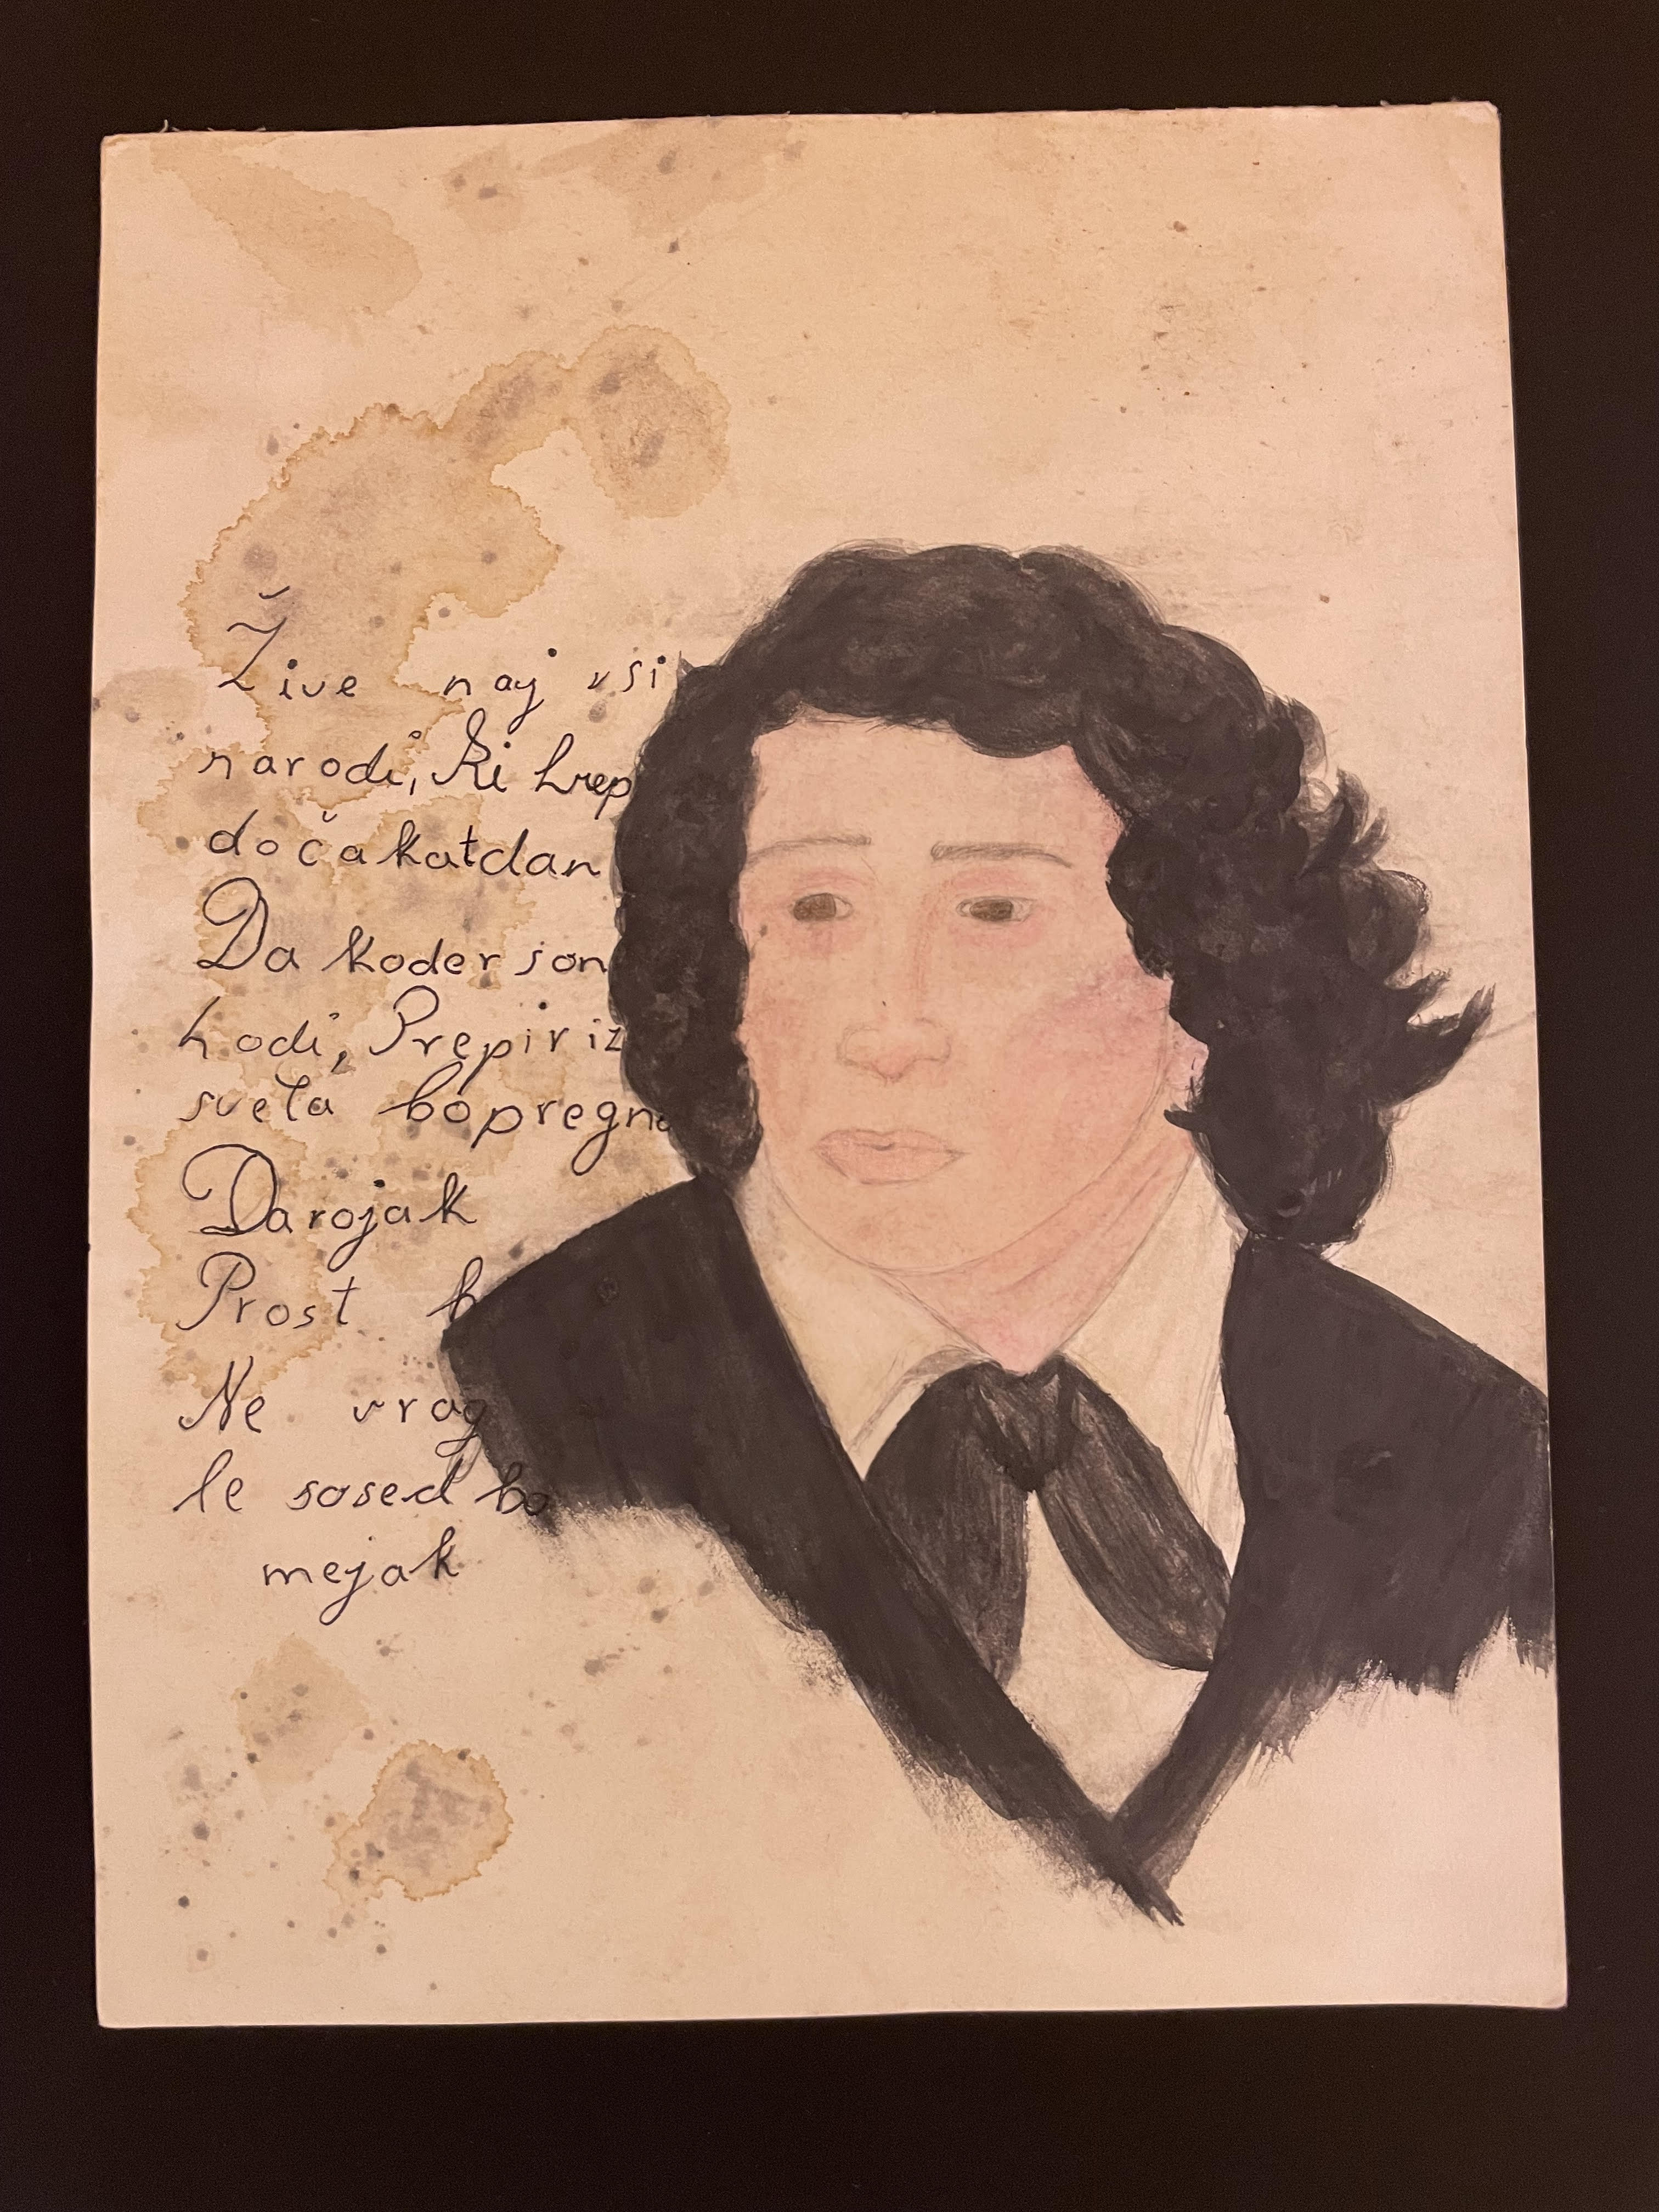 Žive naj vsi
narodi, ki hrep
dočakat dan
Da koder son
hodi, Prepir iz
sveta bo pregna
Da rojak
Prost b
Ne vrag
le sosed bo
mejak